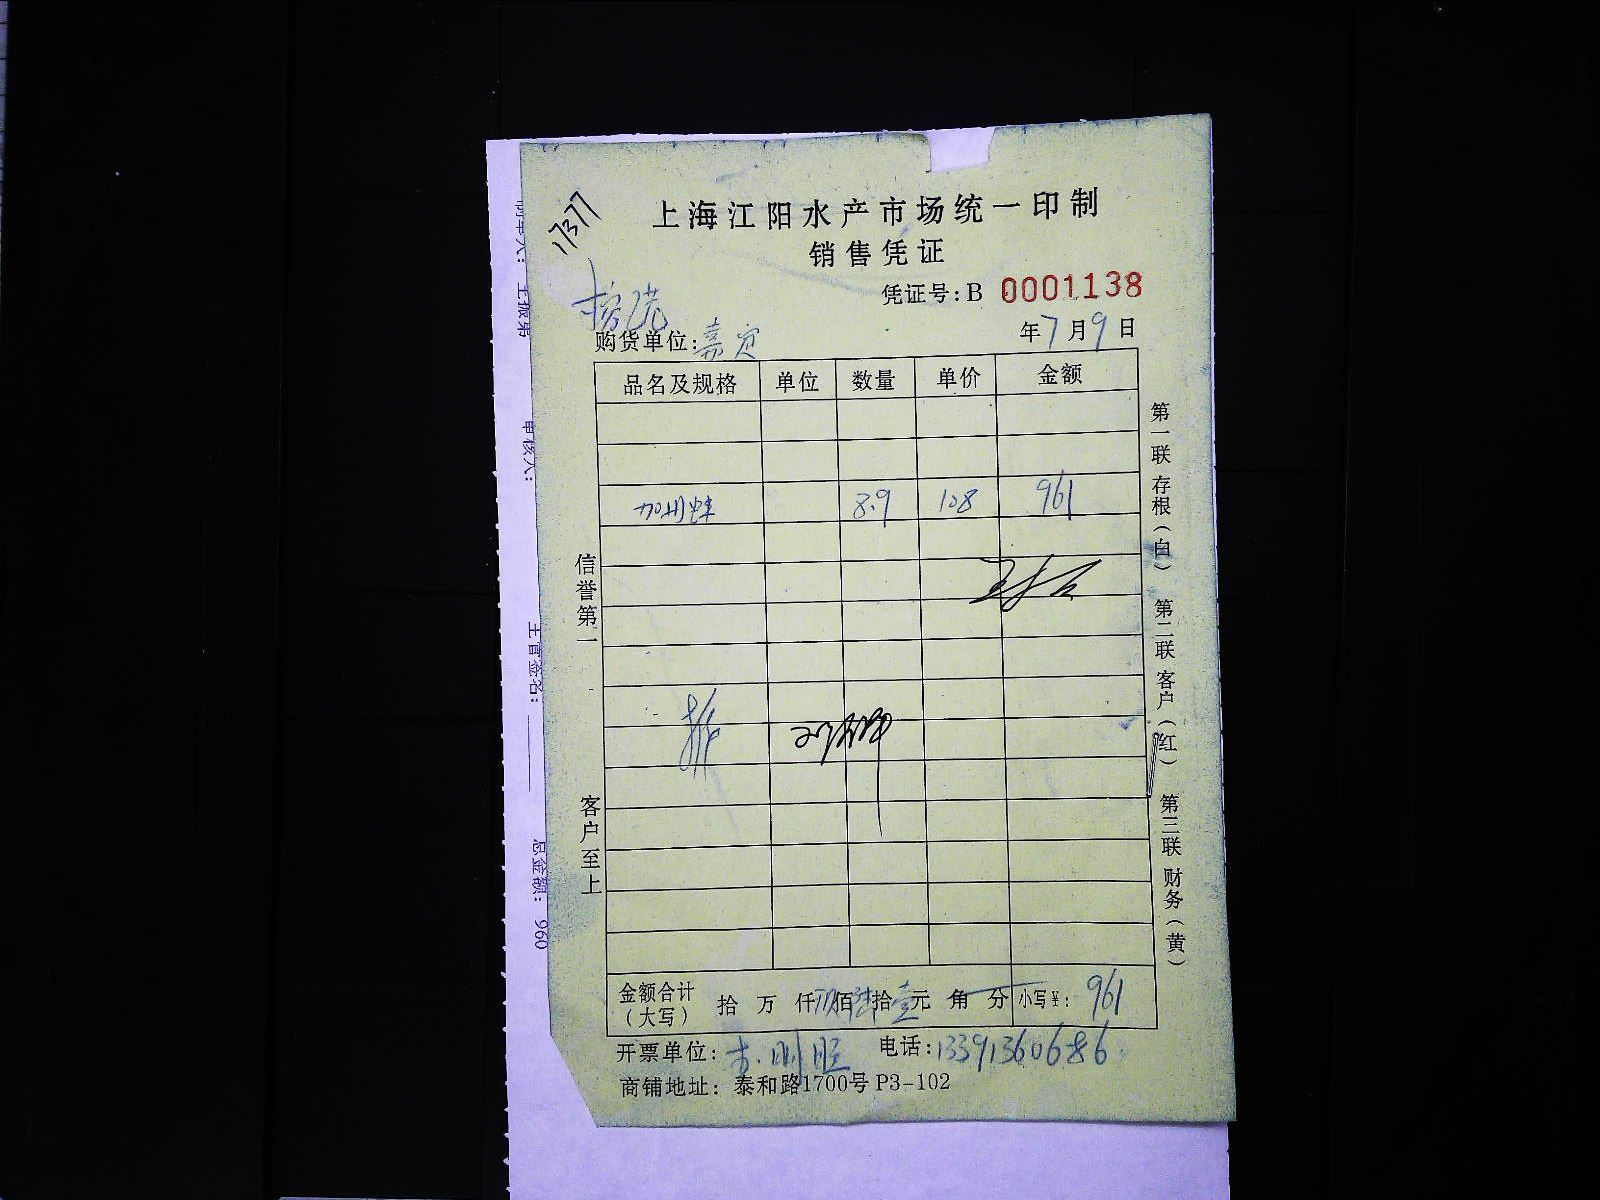 上海江阳水产市场统一印制
销售凭证
17377
凭证号:B 0001138
年7月9日
购货单位:嘉定
品名及规格 单位 数量 单价 金额
加州蚌 8.9 108 961
信誉第一
客户至上
第一联 存根(白) 第二联 客户(红) 第三联 财务(黄)
金额合计(大写) 拾 万 仟 玖佰陆拾壹元 角 分 小写¥: 961
开票单位: 电话:13391360686
商铺地址: 泰和路1700号P3-102
制单人: 王振弟
审核人:
主管签名:
总金额: 960